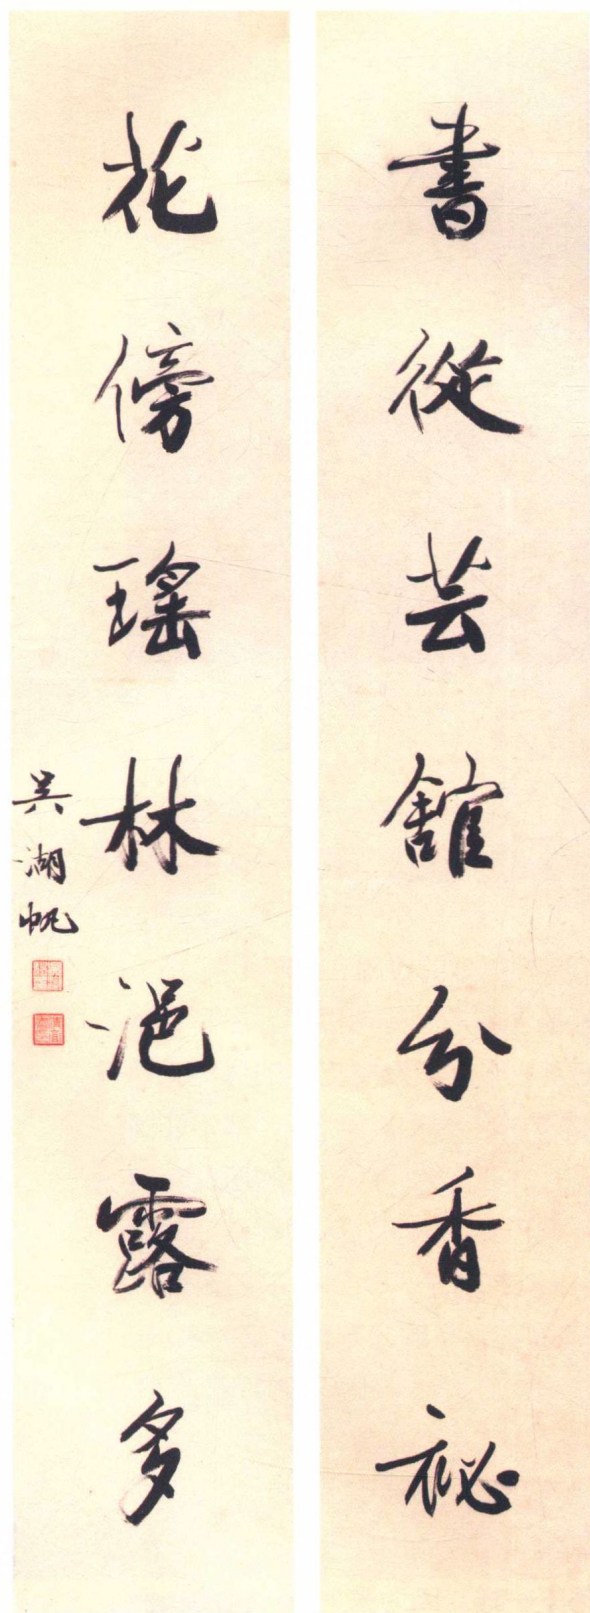 書從芸舘分香祕
花傍瑤林浥露多
吳湖帆